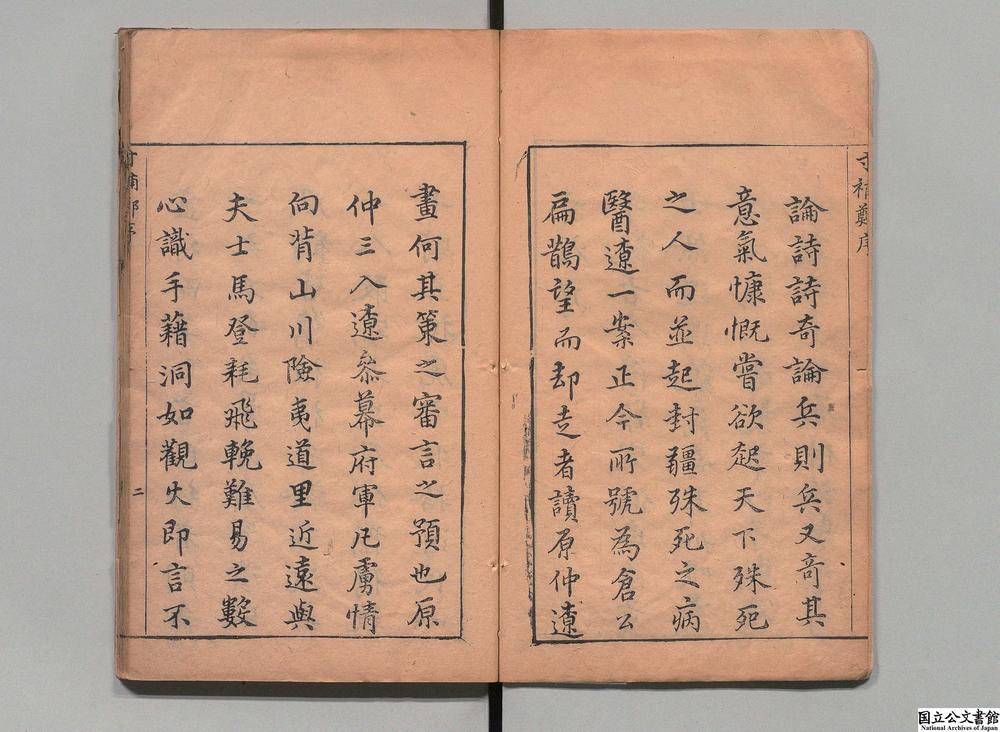 寸補鄭序
論詩詩奇論兵則兵又奇其
意氣慷慨嘗欲起天下殊死
之人而並起封疆殊死之病
醫遼一案正今所號為倉公
扁鵲望而却走者讀原仲遼
畫何其策之審言之預也原
仲三入遼叅幕府軍凡虜情
向背山川險夷道里近遠與
夫士馬登耗飛輓難易之數
心識手藉洞如觀火即言不
二
国立公文書館
National Archives of Japan